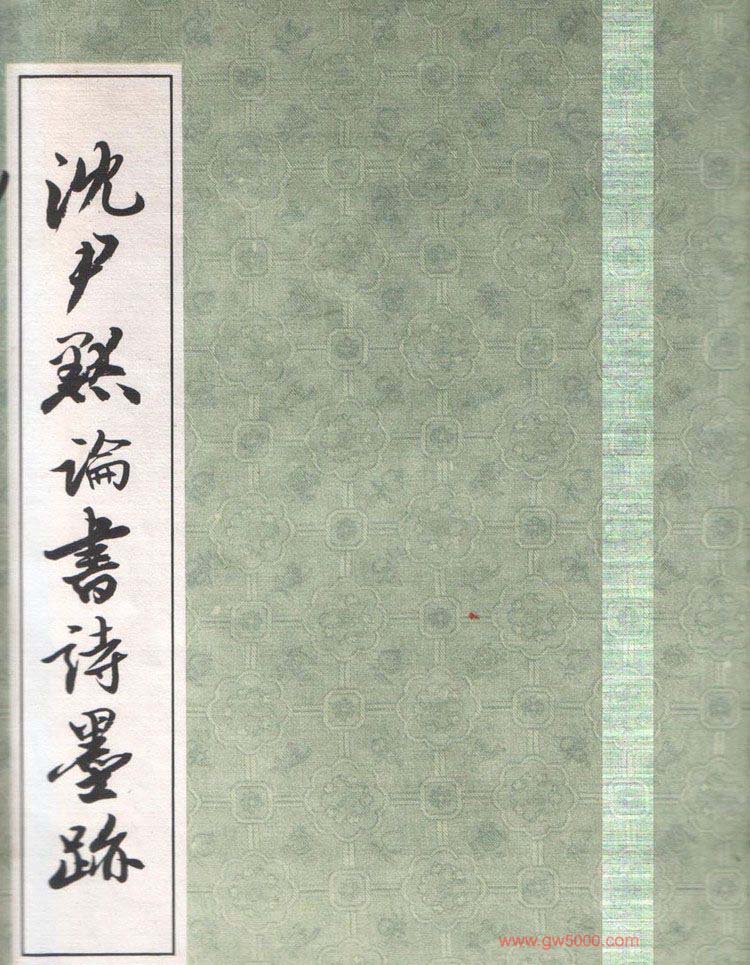 沈尹默論書詩墨跡
www.gw5000.com